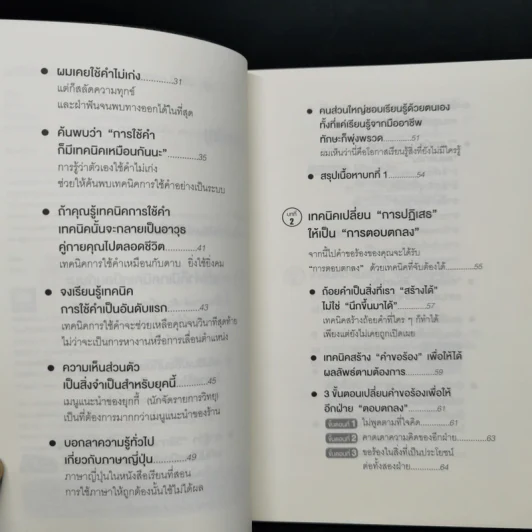 ผมเคยใช้คำไม่เก่ง..............31
แต่ก็สลัดความทุกข์
และฝ่าฟันจนพบทางออกได้ในที่สุด
ค้นพบว่า "การใช้คำ
ก็มีเทคนิคเหมือนกันนะ"..............35
การรู้ว่าตัวเองใช้คำไม่เก่ง
ช่วยให้ค้นพบเทคนิคการใช้คำอย่างเป็นระบบ
ถ้าคุณรู้เทคนิคการใช้คำ
เทคนิคนั้นจะกลายเป็นอาวุธ
คู่กายคุณไปตลอดชีวิต..............41
เทคนิคการใช้คำเหมือนกับดาบ ยิ่งใช้ยิ่งคม
จงเรียนรู้เทคนิค
การใช้คำเป็นอันดับแรก..............43
เทคนิคการใช้คำจะช่วยเหลือคุณจนวินาทีสุดท้าย
ไม่ว่าจะเป็นการหางานหรือการเลื่อนตำแหน่ง
ความเห็นส่วนตัว
เป็นสิ่งจำเป็นสำหรับยุคนี้..............45
เมนูแนะนำของยุกกี้ นักจัดรายการวิทยุ
เป็นที่ต้องการมากกว่าเมนูแนะนำของร้าน
บอกลาความรู้ทั่วไป
เกี่ยวกับภาษาญี่ปุ่น..............49
ภาษาญี่ปุ่นในหนังสือเรียนที่สอน
การใช้ภาษาให้ถูกต้องนั้นใช้ไม่ได้ผล
คนส่วนใหญ่ชอบเรียนรู้ด้วยตนเอง
ทั้งที่แค่เรียนรู้จากมืออาชีพ
ทักษะก็พุ่งพรวด..............51
ผมเห็นว่านี่คือโอกาสเรียนรู้สิ่งที่ยังไม่มีใครรู้
สรุปเนื้อหาบทที่ 1..............54
บทที่ 2
เทคนิคเปลี่ยน "การปฏิเสธ"
ให้เป็น "การตอบตกลง"
จากนี้ไปคำขอร้องของคุณจะได้รับ
"การตอบตกลง" ด้วยเทคนิคที่จับต้องได้..............55
ถ้อยคำเป็นสิ่งที่เรา "สร้างได้"
ไม่ใช่ "นึกขึ้นมาได้"..............57
เทคนิคสร้างถ้อยคำที่ใคร ๆ ก็ทำได้
เพียงแต่ยังไม่เคยถูกเปิดเผย
เทคนิคสร้าง "คำขอร้อง" เพื่อให้ได้
ผลลัพธ์ตามต้องการ..............59
3 ขั้นตอนเปลี่ยนคำขอร้องเพื่อให้
อีกฝ่าย "ตอบตกลง"..............61
ขั้นตอนที่ 1 ไม่พูดตามที่ใจคิด..............61
ขั้นตอนที่ 2 คาดเดาความคิดของอีกฝ่าย..............63
ขั้นตอนที่ 3 ขอร้องในสิ่งที่เป็นประโยชน์
ต่อทั้งสองฝ่าย..............64